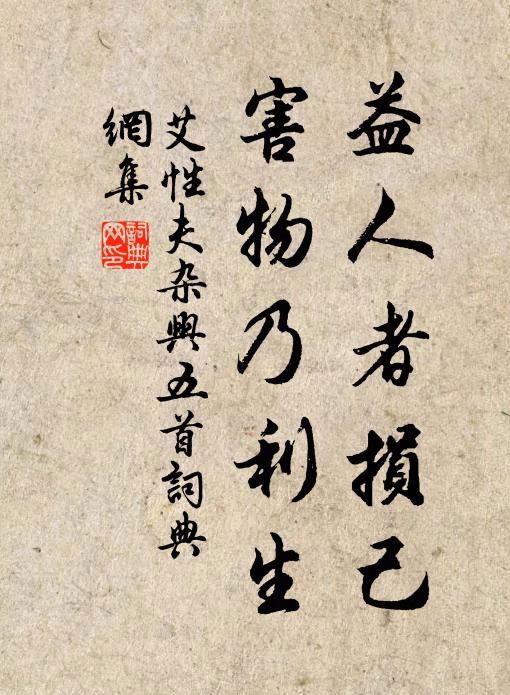 益人者損己
害物乃利生
艾性夫杂興五首詞典
網集
詞典网印